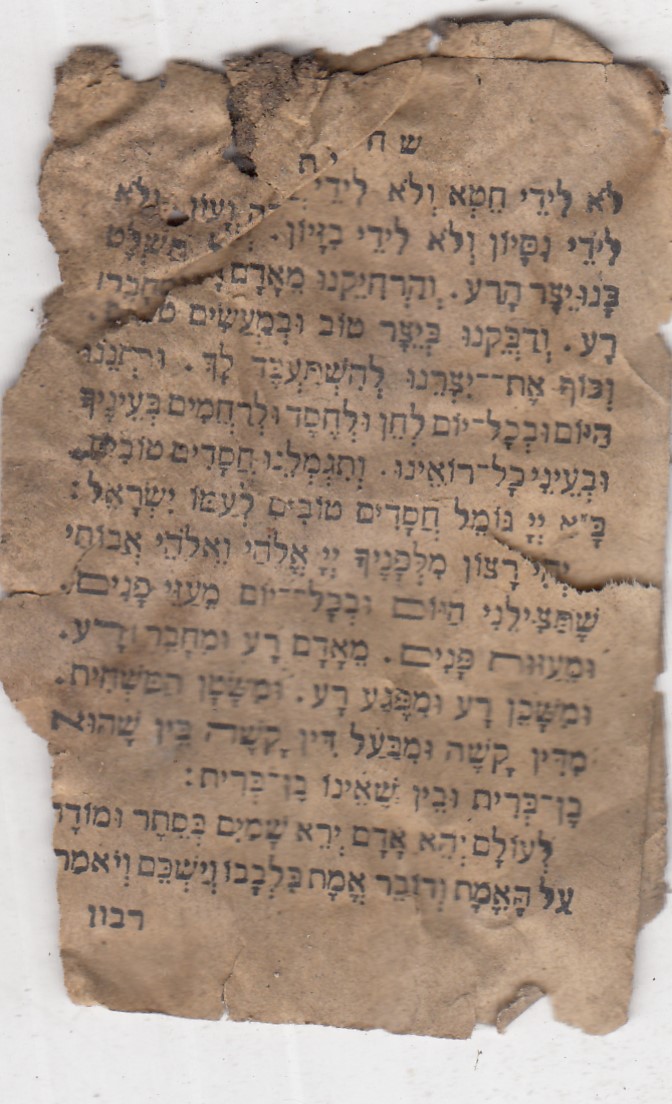 שח ית
לֹא לִידֵי חֵטְא וְלֹא לִידֵי וְעָוֹן. וְלֹא
לִידֵי נִסָּיוֹן וְלֹא לִידֵי בִזָּיוֹן. תַּשְׁלֶט
בָּנוּ יֵצֶר הָרַע. וְהַרְחִיקֵנוּ מֵאָדָם
רָע. וְדַבְּקֵנוּ בְּיֵצֶר טוֹב וּבְמַעֲשִׂים
וְכוֹף אֶת־־יִצְרֵנוּ לְהִשְׁתַּעְבֶּד לָךְ. וּתְנֵנוּ
הַיּוֹם וּבְכָל־יוֹם לְחֵן וּלְחֶסֶד וּלְרַחֲמִים בְּעֵינֶיךָ
וּבְעֵינֵי כָל־רוֹאֵינוּ. וְתִגְמְלֵנוּ חֲסָדִים טוֹבִים.
בָּ״א יְיָ גּוֹמֵל חֲסָדִים טוֹבִים לְעַמּוֹ יִשְׂרָאֵל:
יְהִי רָצוֹן מִלְּפָנֶיךָ יְיָ אֱלֹהַי וֵאלֹהֵי אֲבוֹתַי
שֶׁתַּצִּילֵנִי הַיּוֹם וּבְכָל־־יוֹם מֵעַזֵּי פָנִים.
וּמֵעַזּוּת פָּנִים. מֵאָדָם רָע וּמֵחָבֵר רָע.
וּמִשָּׁכֵן רָע וּמִפֶּגַע רָע. וּמִשָּׂטָן הַמַּשְׁחִית.
מִדִּין קָשֶׁה וּמִבַּעַל דִּין קָשֶׁה בֵּין שֶׁהוּא
בֶן־בְּרִית וּבֵין שֶׁאֵינוֹ בֶן־בְּרִית:
לְעוֹלָם יְהֵא אָדָם יְרֵא שָׁמַיִם בְּסֵתֶר וּמוֹדֶה
עַל הָאֱמֶת וְדוֹבֵר אֱמֶת בִּלְבָבוֹ וְיַשְׁכֵּם וְיֹאמַר
רבון